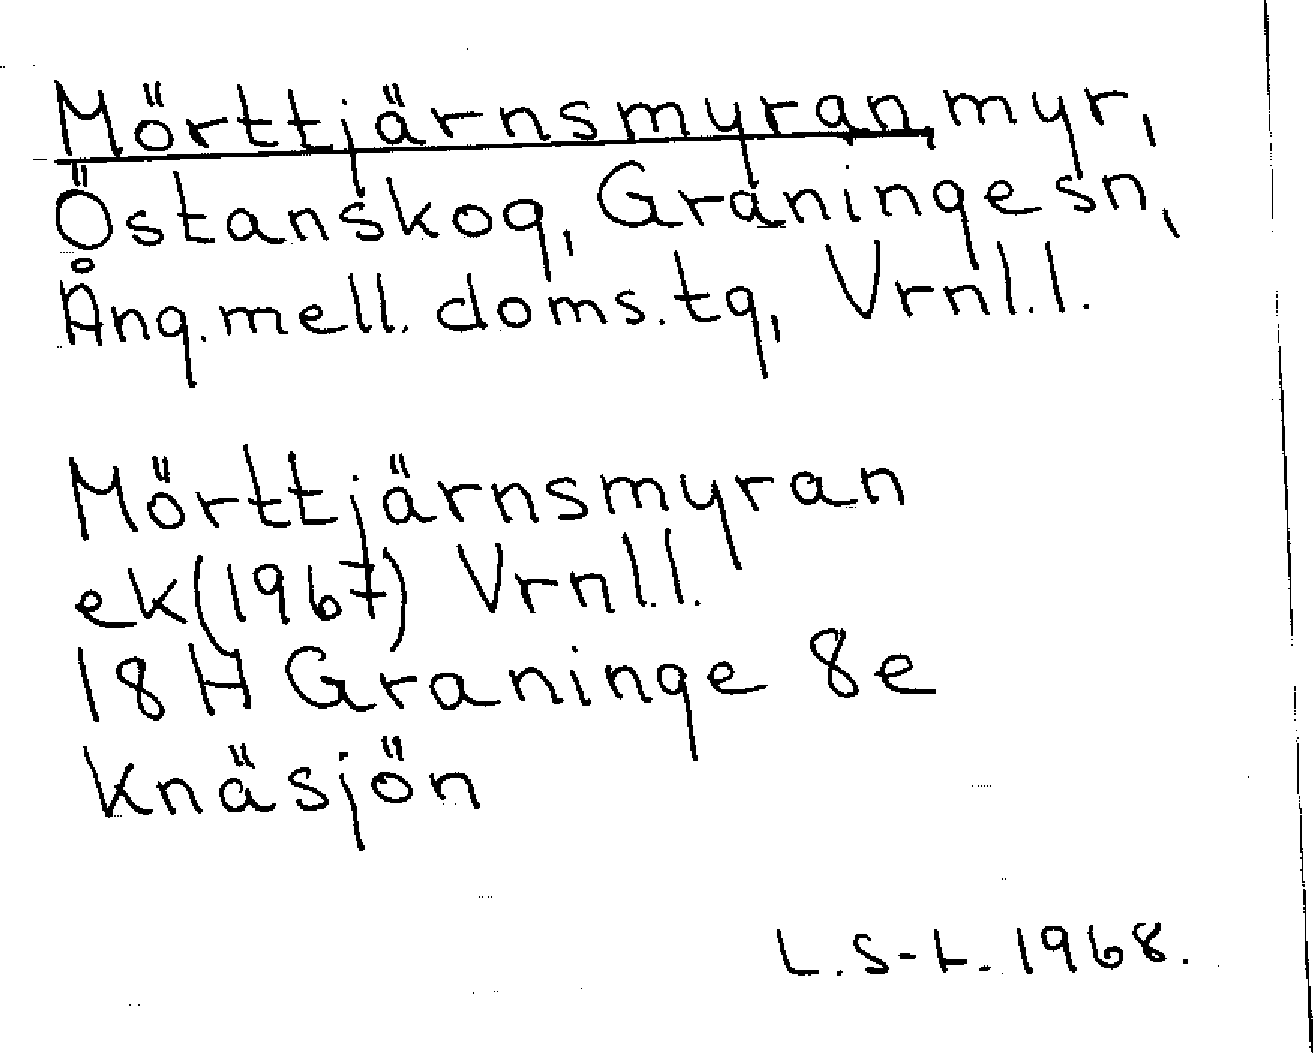 Mörttjärnsmyran, myr,
Östanskog, Graninge sn,
Ång. mell. doms. tg, Vrnl.l.
Mörttjärnsmyran
ek (1967) Vrnl.l.
18 H Graninge 8e
Knäsjön
L. S-L. 1968.